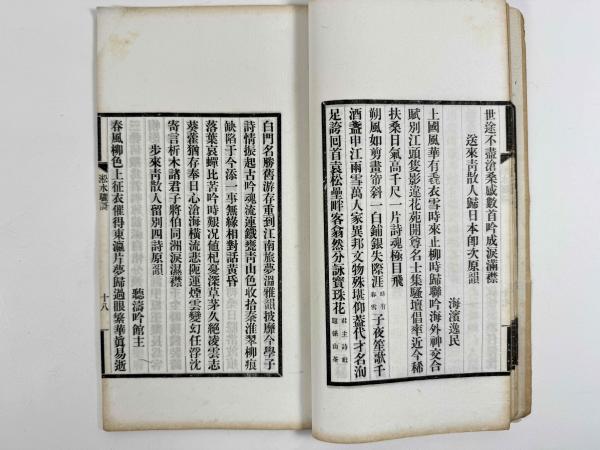 世途不盡滄桑感數首吟成淚滿襟
送來靑散人歸日本卽次原韻
海濱逸民
上國風華有毳衣雪時來止柳時歸聯吟海外神交合
賦別江頭隻影違花苑開尊名士集騷壇倡率近今稀
扶桑日氣高千尺一片詩魂極目飛
朔風如剪畫帘斜一白鋪銀失際涯
子夜笙歌千
酒盞申江兩雪萬人家異邦文物殊堪仰蓋代才名洵
足誇回首袁松壘畔客翕然分詠寶珠花
白門名勝舊游存重到江南旅夢溫雅韻披靡今學子
詩情振起古吟魂流連鐵甕靑山色收拾秦淮翠柳痕
缺陷于今添一事無緣相對話黃昏
落葉哀蟬比苦吟時艱況値杞憂深草茅久絕凌雲志
葵藿猶存奉日心滄海橫流悲阨運煙雲變幻任浮沈
寄言析木諸君子將伯同洲淚濕襟
步來靑散人留別四詩原韻
聽濤吟館主
春風柳色上征衣催得東瀛片夢歸過眼繁華眞易逝
十八